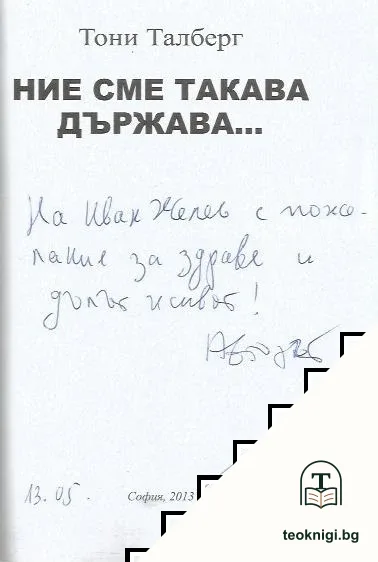 Тони Талберг
НИЕ СМЕ ТАКАВА
ДЪРЖАВА...
На Иван Желев с поже-
лание за здраве и
дълъг живот!
Авторът
13.05.
София, 2013
T
teoknigi.bg